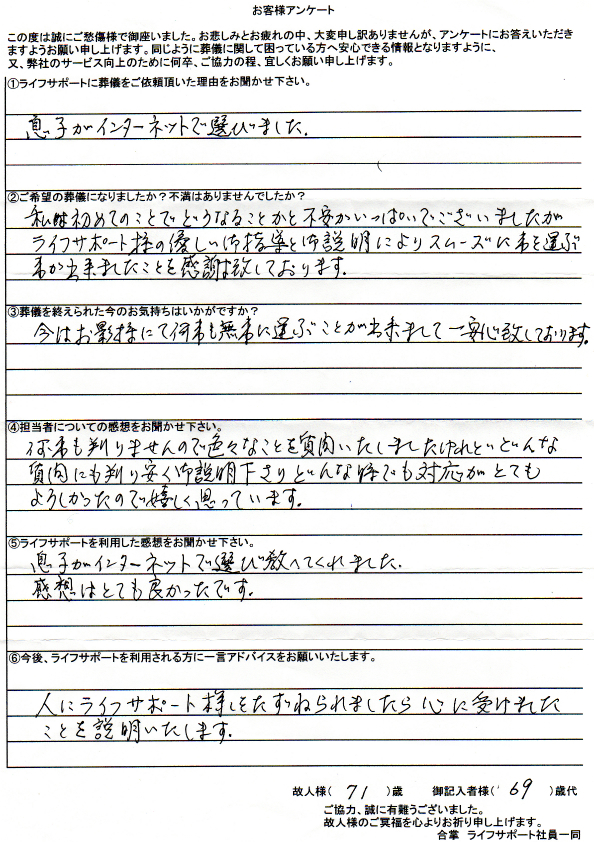 お客様アンケート
この度は誠にご愁傷様で御座いました。お悲しみとお疲れの中、大変申し訳ありませんが、アンケートにお答えいただき
ますようお願い申し上げます。同じように葬儀に関して困っている方へ安心できる情報となりますように、
又、弊社のサービス向上のために何卒、ご協力の程、宜しくお願い申し上げます。
①ライフサポートに葬儀をご依頼頂いた理由をお聞かせ下さい。
息子がインターネットで選びました.
②ご希望の葬儀になりましたか？不満はありませんでしたか？
私は初めてのことでどうなることかと不安がいっぱいでございましたが
ライフサポート様の優しい御指導と御説明によりスムーズに事を運ぶ
事が出来ましたことを感謝致しております.
③葬儀を終えられた今のお気持ちはいかがですか？
今はお影様にて何事も無事に運ぶことが出来まして一安心致しております.
④担当者についての感想をお聞かせ下さい。
何事も判りませんので色々なことを質問いたしましたけれどどんな
質問にも判り安く御説明下さりどんな時でも対応がとても
よろしかったので嬉しく思っています.
⑤ライフサポートを利用した感想をお聞かせ下さい。
息子がインターネットで選び教へてくれました.
感想はとても良かったです.
⑥今後、ライフサポートを利用される方に一言アドバイスをお願いいたします。
人にライフサポート様をたずねられましたら心に受けました
ことを説明いたします.
故人様( 71 )歳 御記入者様( 69 )歳代
ご協力、誠に有難うございました。
故人様のご冥福を心よりお祈り申し上げます。
合掌 ライフサポート社員一同